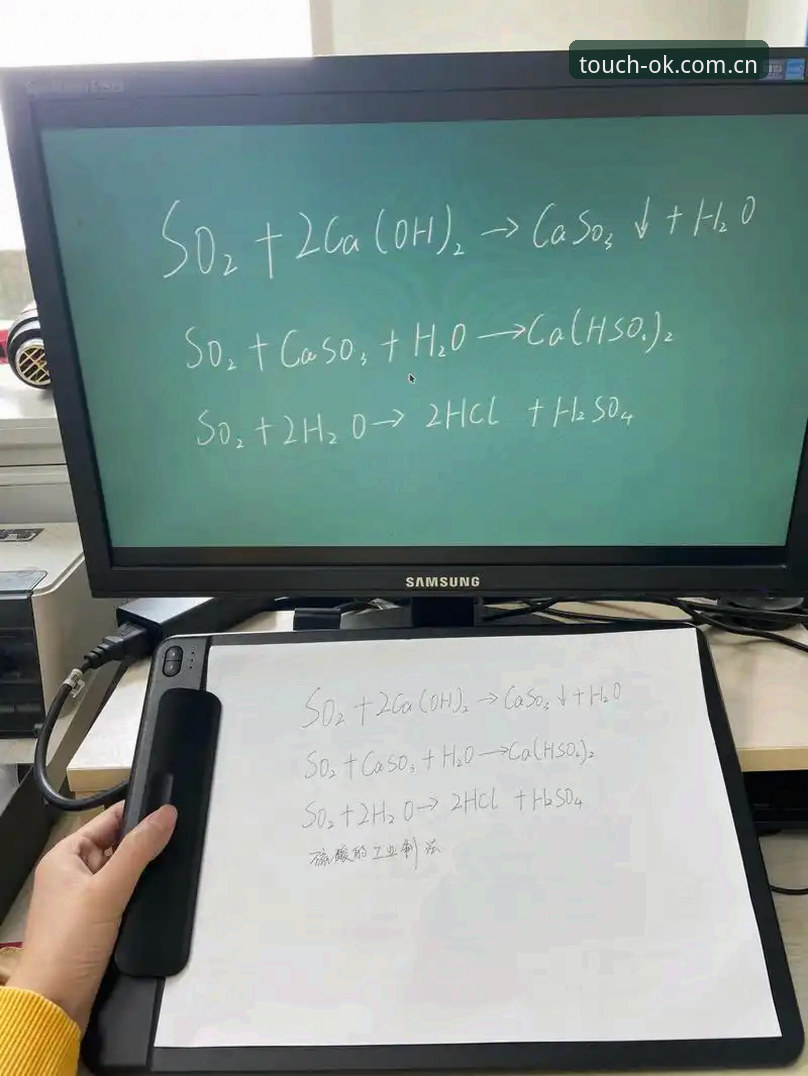 touch-ok.com.cn
SO₂ + 2Ca(OH)₂ → CaSO₃ ↓ + H₂O
SO₂ + CaSO₃ + H₂O → Ca(HSO₃)₂
SO₂ + 2H₂O → 2HCl + H₂SO₄
SAMSUNG
SO₂ + 2Ca(OH)₂ → CaSO₃ ↓ + H₂O
SO₂ + CaSO₃ + H₂O → Ca(HSO₃)₂
SO₂ + 2H₂O → 2HCl + H₂SO₄
硫酸的工业制法